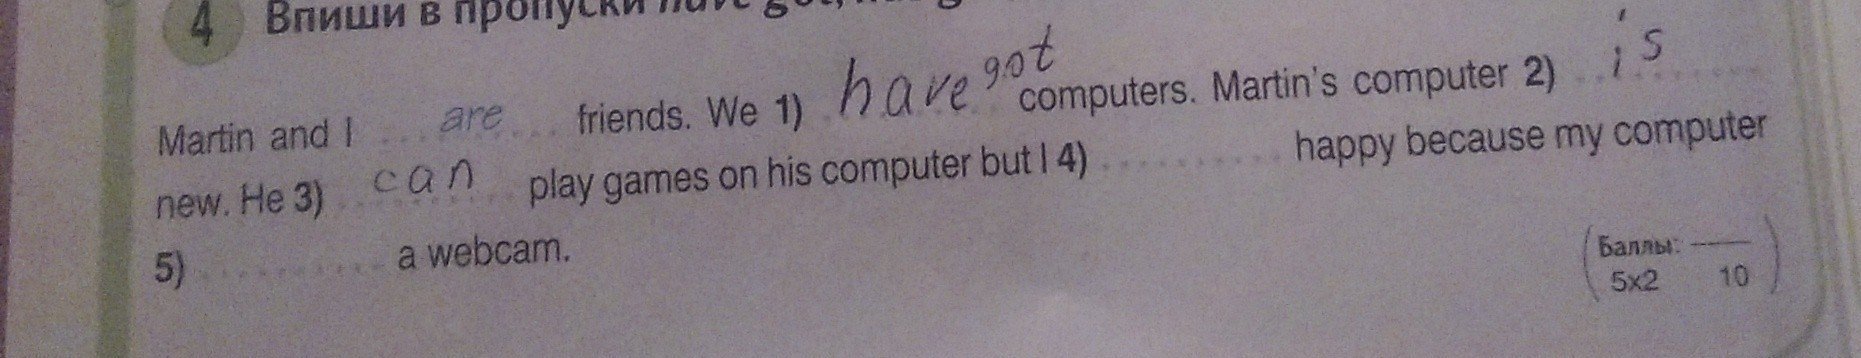 4 Впиши в пропуски have got,
Martin and I are friends. We 1) have got computers. Martin's computer 2) is
new. He 3) can play games on his computer but I 4) .......... happy because my computer
5) .......... a webcam.
(Баллы: ——
5x2 10)